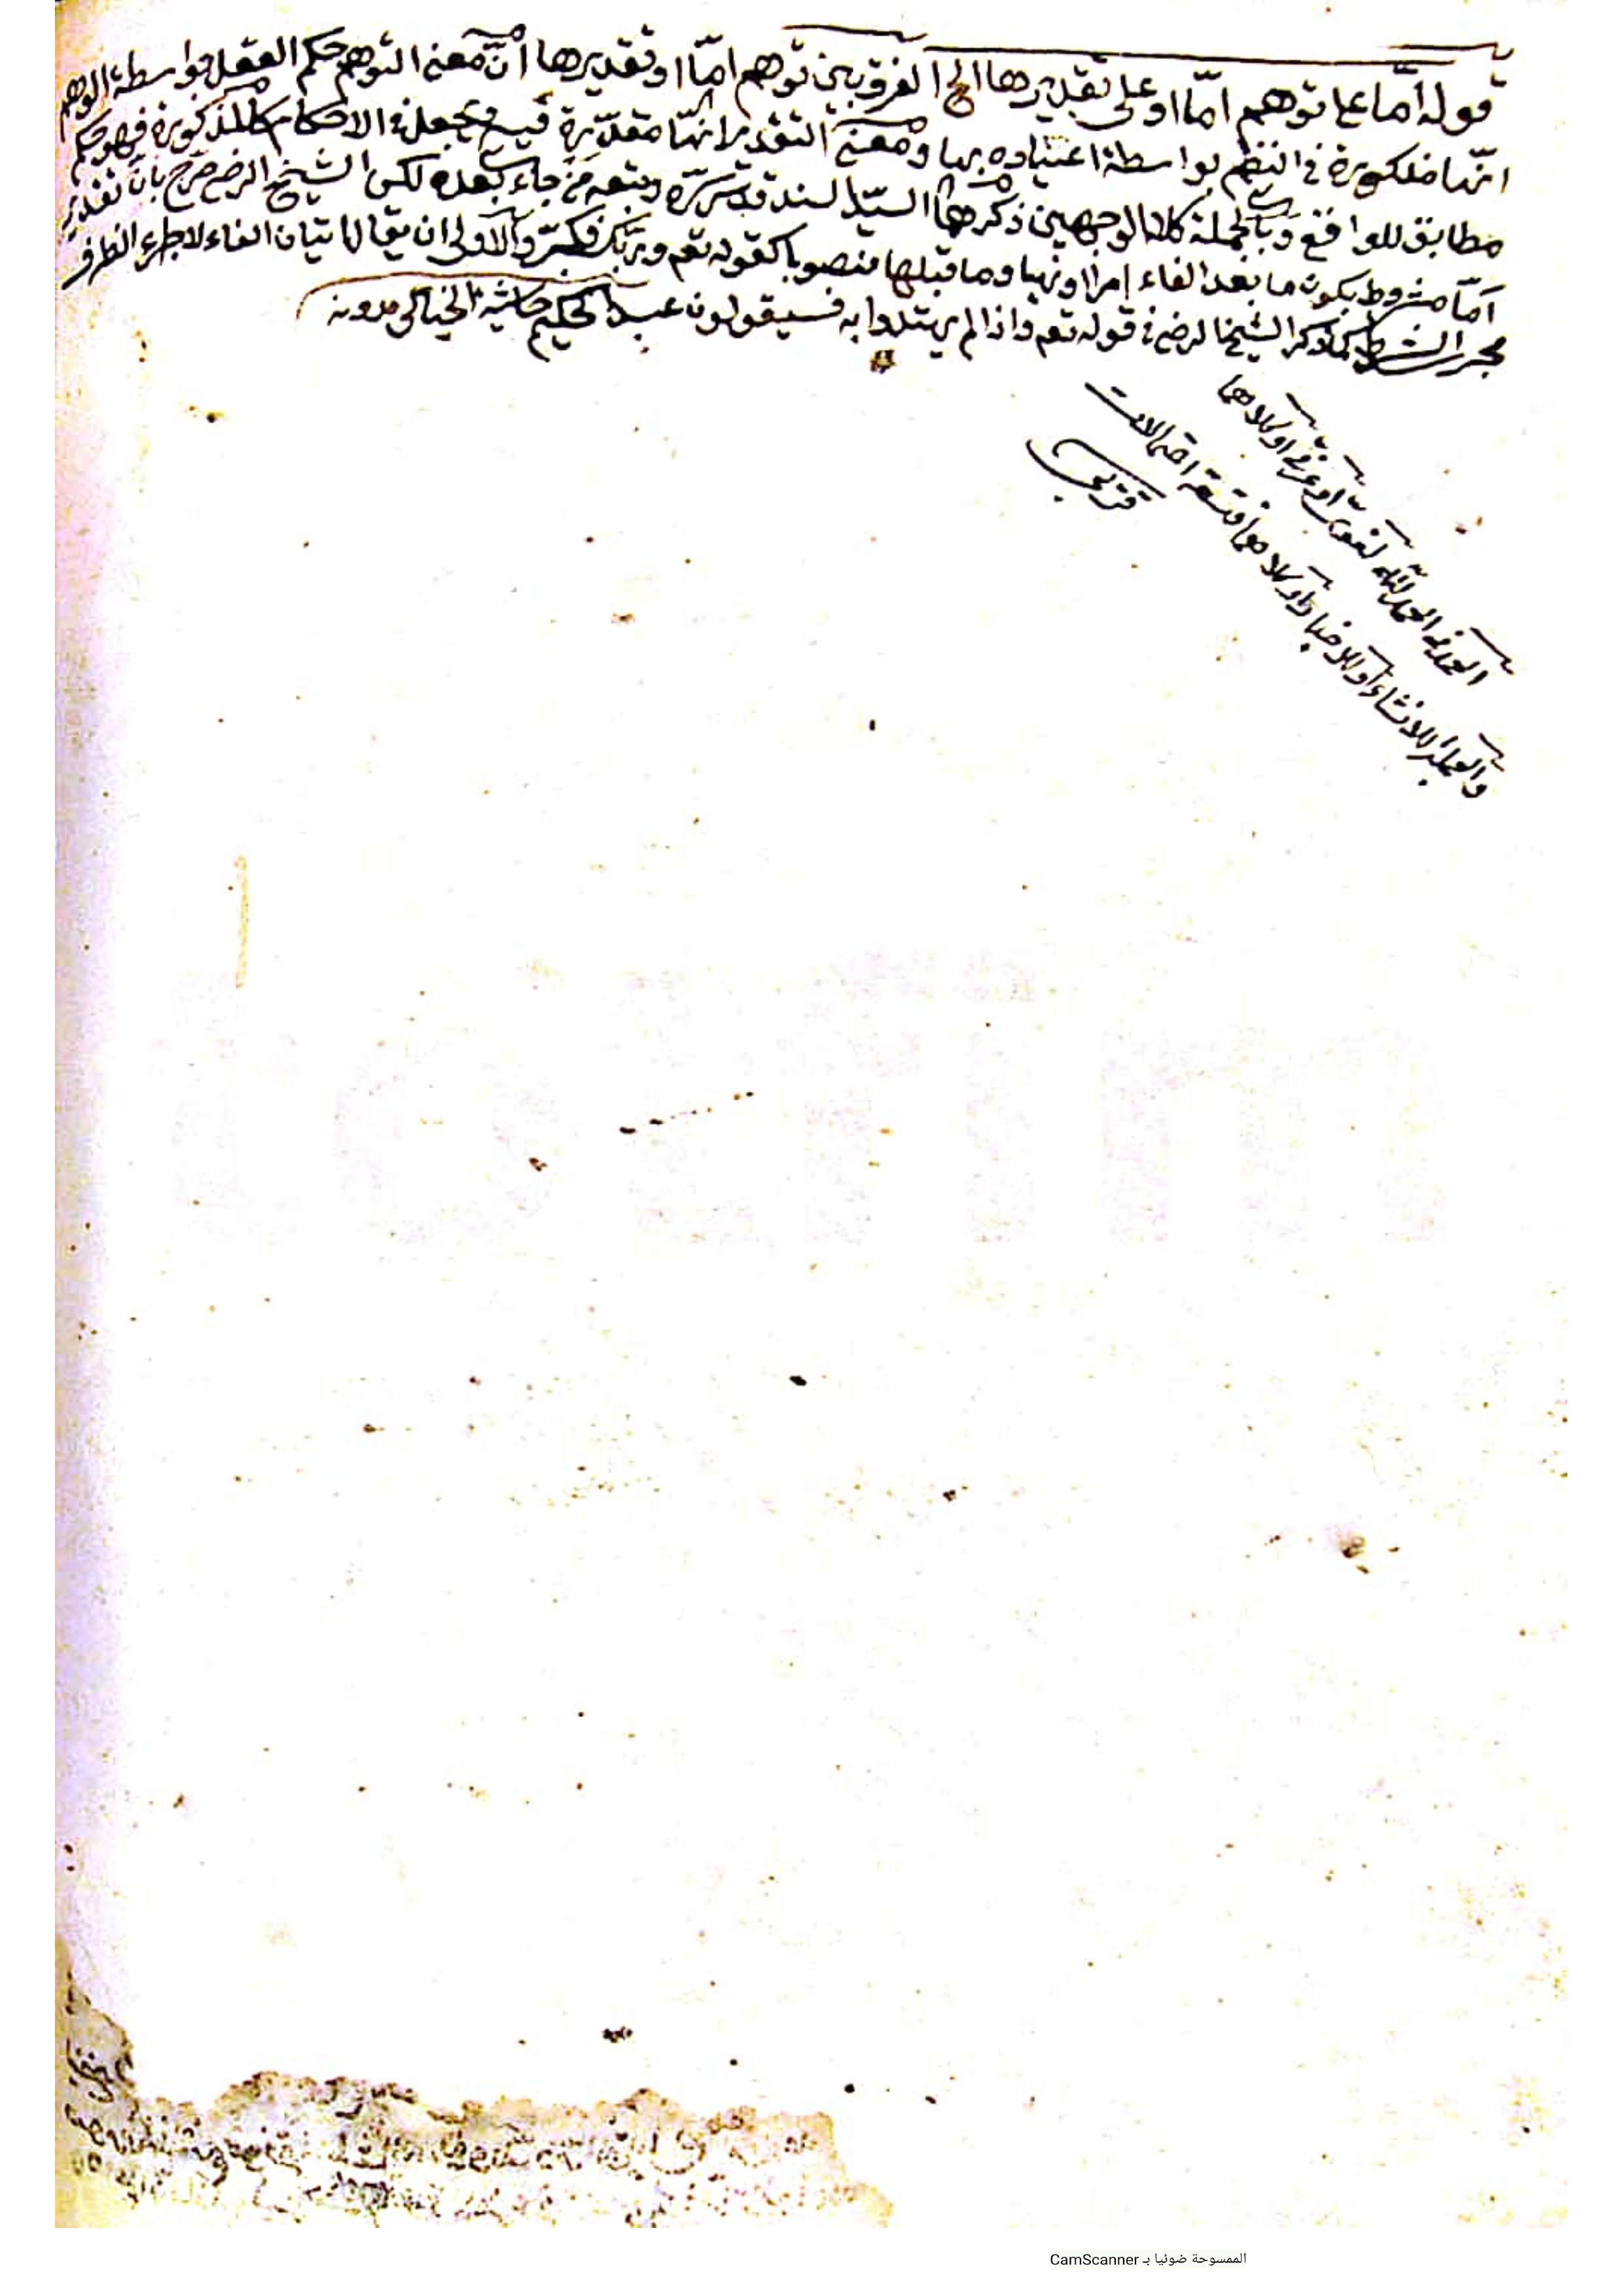 قوله اما على توهم امّا او على تقديرها الخ الفرق بين توهم امّا او تقديرها انّ معنى التوهم حكم العقل بواسطة الوهم
انّها مذكورة في النظم بواسطة اعتياده بها ومعنى التقدير انّها مقدّرة فيه ويجعل في الاحكام كالمذكورة فهو حكم
مطابق للواقع وبالجملة كلا الوجهين ذكرهما السيّد السند قدّس سرّه وتبعه من جاء بعده لكن الشيخ الرضي صرّح بانّ تقدير
امّا مشروط بكون ما بعد الفاء امرا او نهيا وما قبلها منصوبا كقوله تعم وربّك فكبّر والاولى ان يقال اتيان الفاء لاجراء الظرف
مجرى الشرط كما ذكر الشيخ الرضي في قوله تعم واذا لم يهتدوا به فسيقولون عبد الحكيم حاشية الخيالي مدونه
الحمد في الحمد لله لغويّ او عرفيّ او كلاهما
والجملة للانشاء او للاخبار او كلاهما فتسعة احتمالات
الممسوحة ضوئيا بـ CamScanner